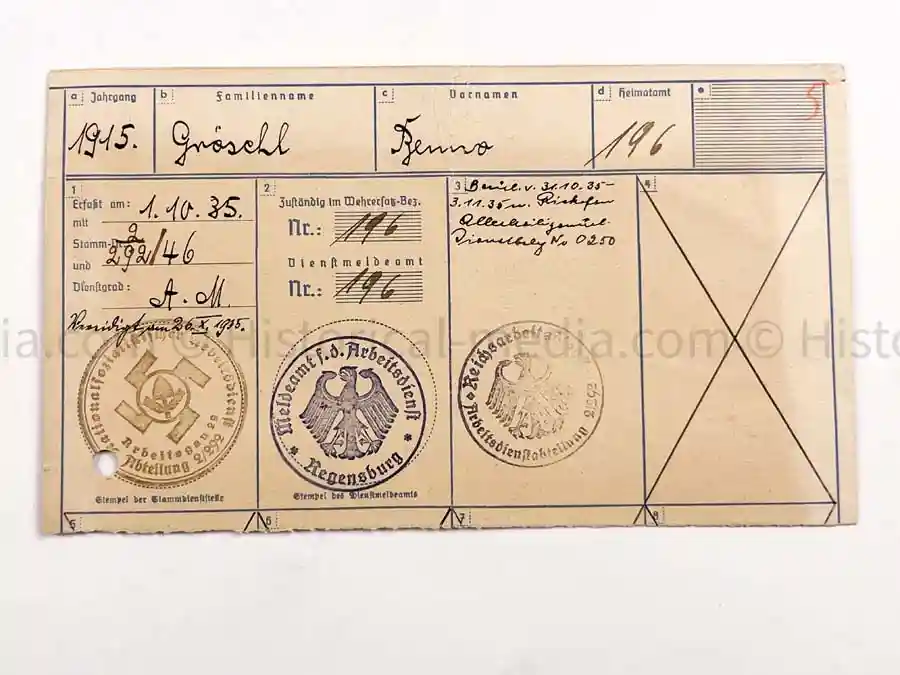 a Jahrgang
b Familienname
c Vornamen
d Heimatamt
e
5
1915.
Gröschl
Benno
196
1
Erfaßt am: 1.10.35.
mit
Stamm-Nr. 2
292/46
und
Dienstgrad: A.M.
Vereidigt am 26.X.1935.
Nationalsozialistischer Arbeitsdienst
Arbeitsgau 29
Abteilung 2/292
Stempel der Stammdienststelle
2
Zuständig im Wehrersatz-Bez.
Nr.: 196
Dienstmeldeamt
Nr.: 196
Meldeamt f.d. Arbeitsdienst
Regensburg
Stempel des Dienstmeldeamts
3 Beurl. v. 31.10.35-
3.11.35 n.
No 0250
Reichsarbeitsdienst
Arbeitsdienstabteilung 2/292
4
5
6
7
8
ia.com © Historical-media.com © Histo